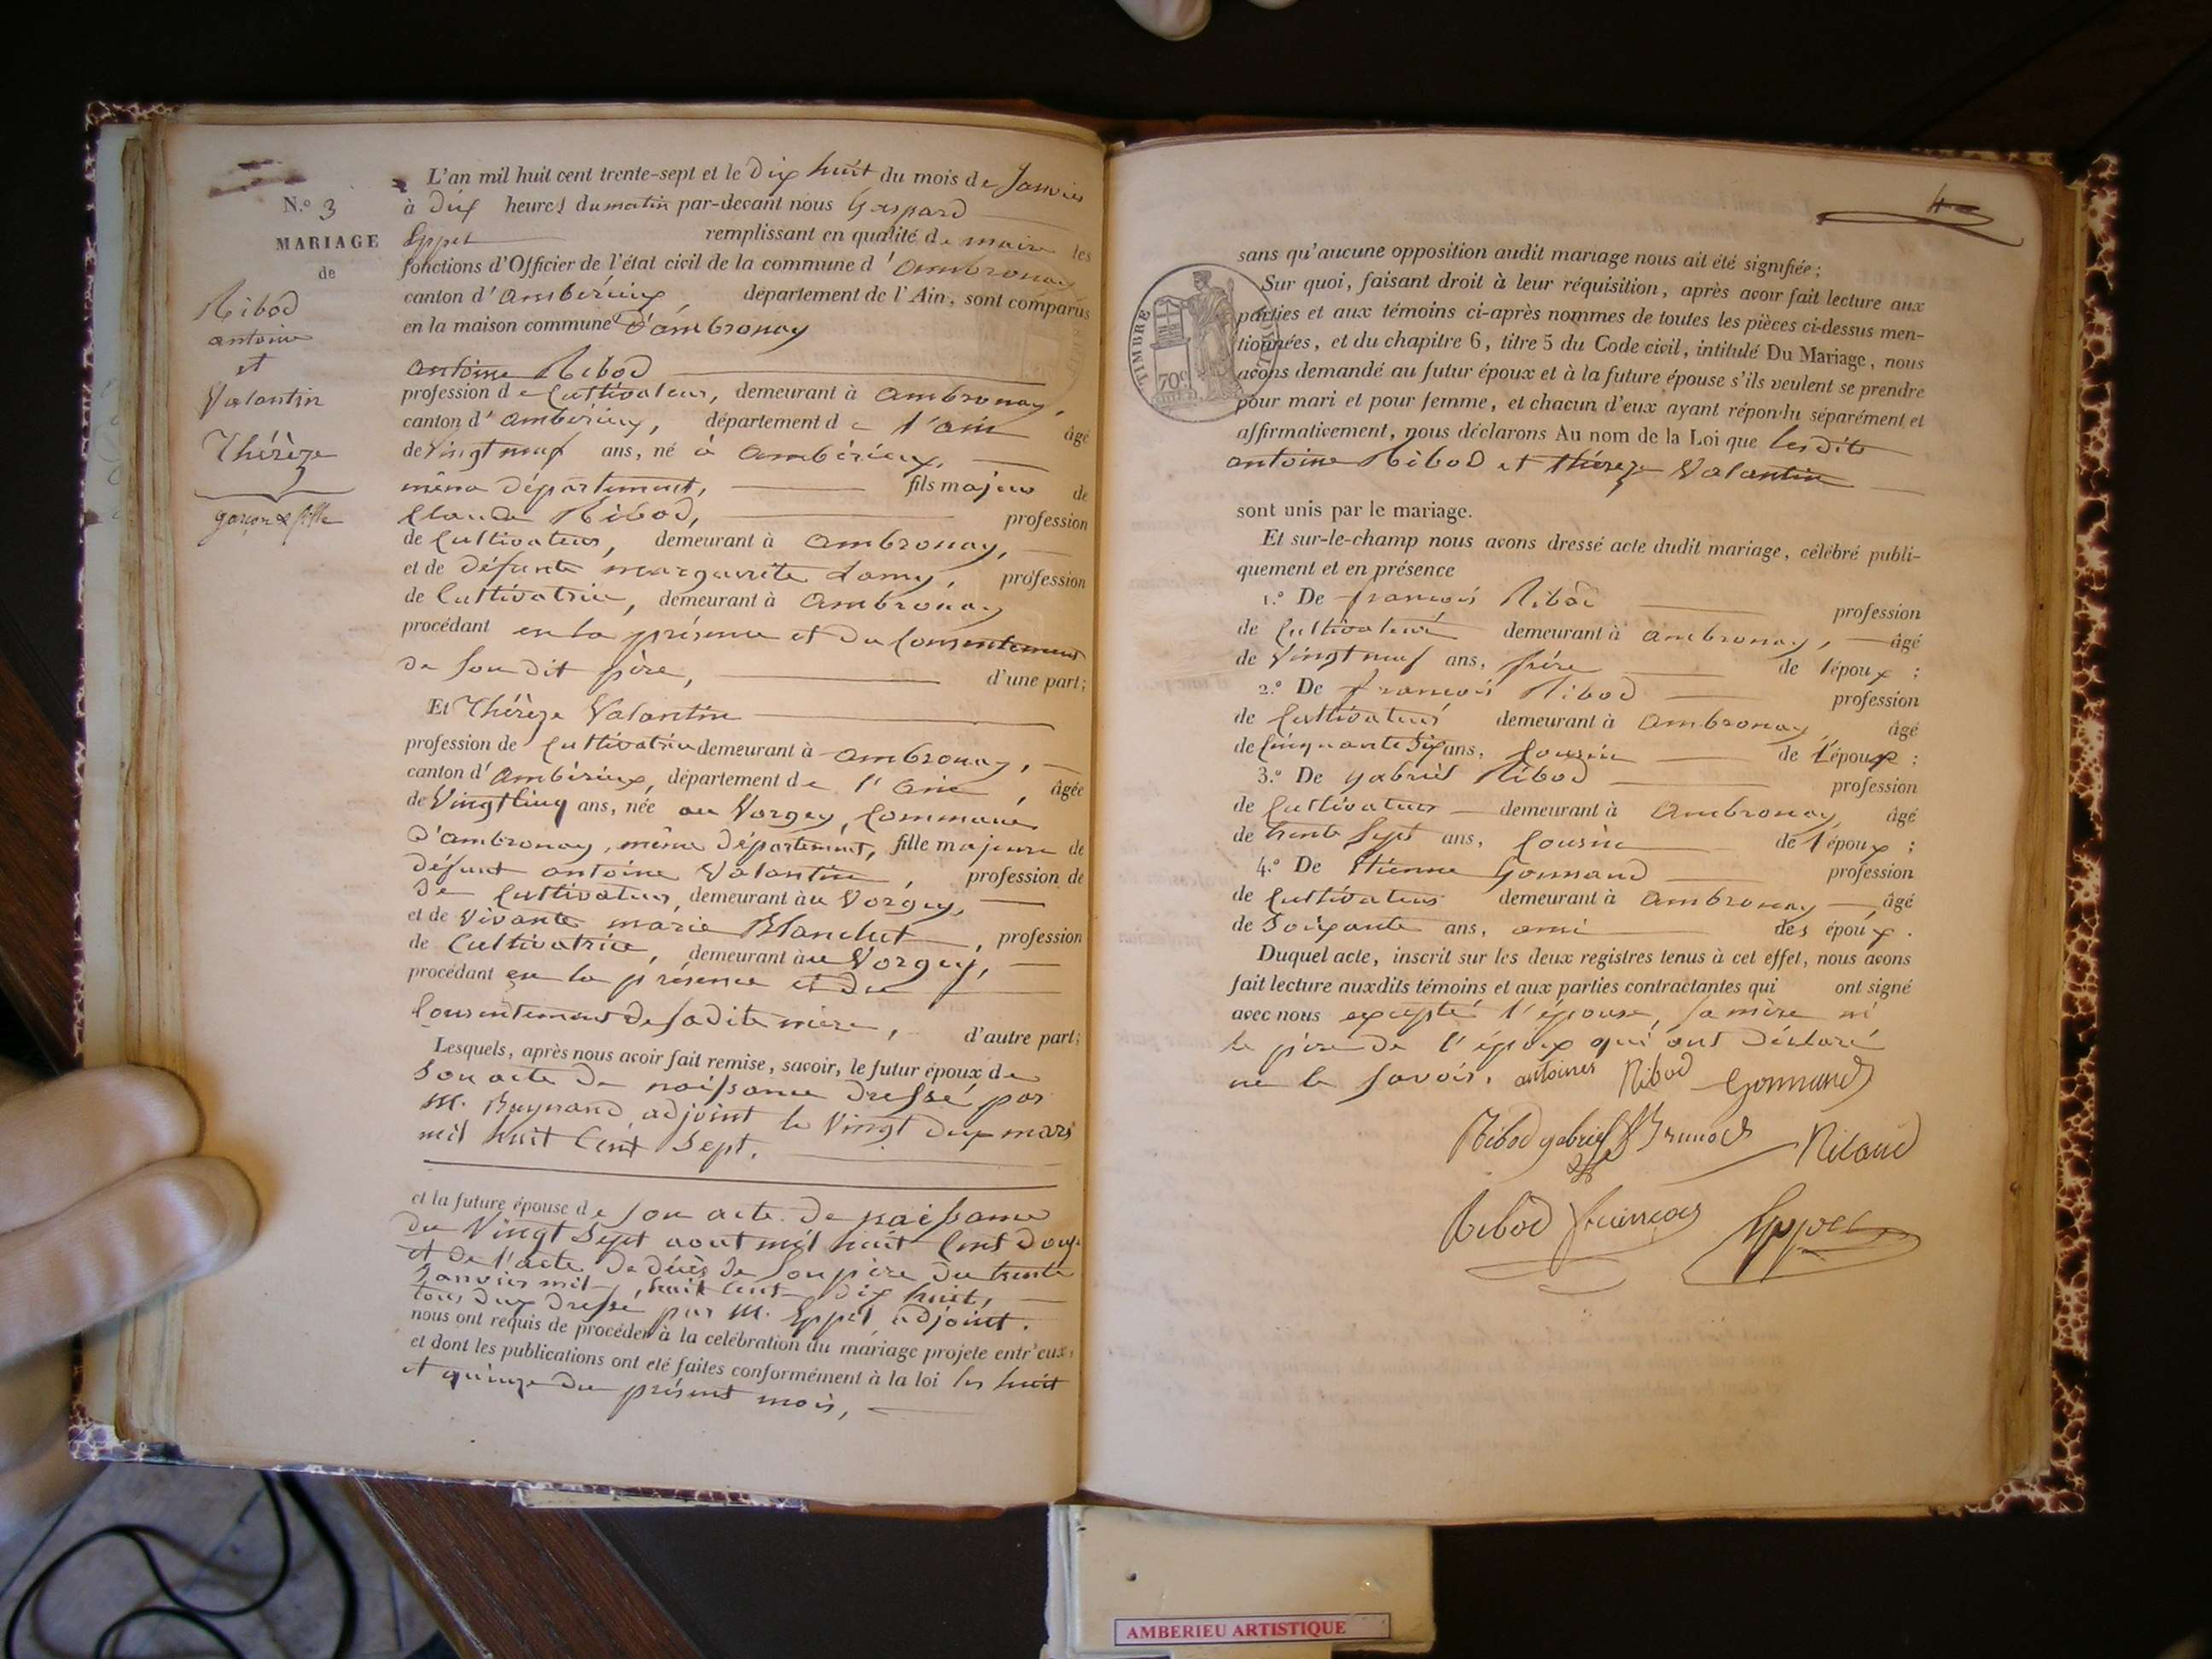 N.° 3
MARIAGE
de
Ribod
antoine
et
Valantin
Thérèze
garçon & fille
L'an mil huit cent trente-sept et le dix huit du mois de Janvier
à dix heures du matin par-devant nous Gaspard
Eppel remplissant en qualité de maire les
fonctions d'Officier de l'état civil de la commune d'ambronay
canton d'ambérieux, département de l'Ain, sont comparus
en la maison commune D'ambronay
antoine Ribod
profession de Cultivateur, demeurant à ambronay,
canton d'ambérieux, département de l'ain âgé
de Vingt neuf ans, né à ambérieux,
même département, fils majeur de
Claude Ribod, profession
de Cultivateur, demeurant à ambronay,
et de défunte marguerite Lamy, profession
de Cultivatrice, demeurant à ambronay
procédant en la présence et du Consentement
de Son dit père, d'une part;
Et Thérèze Valantin
profession de Cultivatrice demeurant à ambronay,
canton d'ambérieux, département de l'ain, âgée
de Vingt Cinq ans, née au Vorgey, Commune
d'ambronay, même département, fille majeure de
défunt antoine Valantin, profession de
de Cultivateur, demeurant àu Vorgey,
et de Vivante marie Blanchet, profession
de Cultivatrice, demeurant àu Vorgey,
procédant en la présence et du
Consentement de Sadite mère, d'autre part;
Lesquels, après nous avoir fait remise, savoir, le futur époux de
Son acte de naissance dressé par
M. adjoint le Vingt deux mars
mil huit Cent Sept.
et la future épouse de Son acte de naissance
du Vingt Sept aout mil huit Cent douze
et de l'acte de décès de Son père du trente
Janvier mil huit Cent dix huit,
tous deux dressé par M. Eppel adjoint.
nous ont requis de procéder à la celébration du mariage projeté entr'eux,
et dont les publications ont été faites conformément à la loi les huit
et quinze du présent mois,
sans qu'aucune opposition audit mariage nous ait été signifiée;
Sur quoi, faisant droit à leur réquisition, après avoir fait lecture aux
parties et aux témoins ci-après nommes de toutes les pièces ci-dessus men-
tionnées, et du chapitre 6, titre 5 du Code civil, intitulé Du Mariage, nous
avons demandé au futur époux et à la future épouse s'ils veulent se prendre
pour mari et pour femme, et chacun d'eux ayant répondu séparément et
affirmativement, nous déclarons Au nom de la Loi que lesdits
antoine Ribod et thérèze Valantin
sont unis par le mariage.
Et sur-le-champ nous avons dressé acte dudit mariage, célébré publi-
quement et en présence
1.° De françois Ribod profession
de Cultivateur demeurant à ambronay, âgé
de Vingt neuf ans, frère de l'époux;
2.° De françois Ribod profession
de Cultivateur demeurant à ambronay âgé
de Cinquante Six ans, Cousin de l'époux;
3.° De gabriel Ribod profession
de Cultivateur demeurant à Ambronay, âgé
de trente Sept ans, Cousin de l'époux;
4.° De Etienne Gonnand profession
de Cultivateur demeurant à ambronay âgé
de Soixante ans, ami des époux.
Duquel acte, inscrit sur les deux registres tenus à cet effet, nous avons
fait lecture auxdits témoins et aux parties contractantes qui ont signé
avec nous excepté l'épouse, Sa mère ni
le père de l'époux qui ont déclaré
ne le Savoir. antoines Ribod Gonnand
Ribod gabriel
Ribod françois Eppel
TIMBRE
70c
AMBERIEU ARTISTIQUE